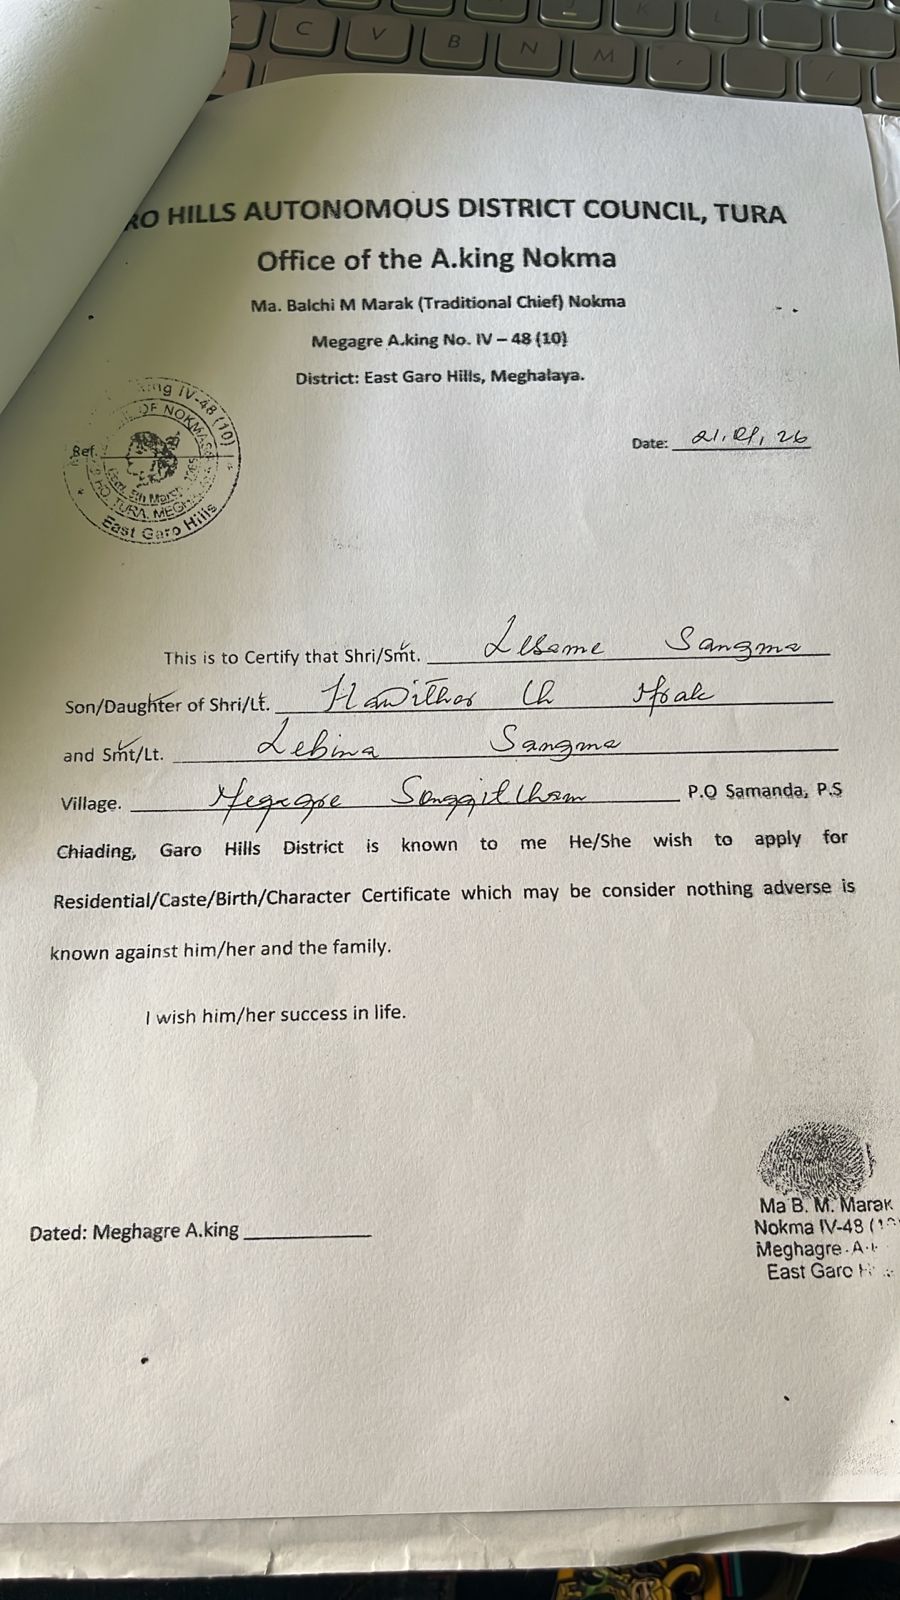 C V B N M
RO HILLS AUTONOMOUS DISTRICT COUNCIL, TURA
Office of the A.king Nokma
Ma. Balchi M Marak (Traditional Chief) Nokma
Megagre A.king No. IV – 48 (10)
District: East Garo Hills, Meghalaya.
ing IV-48 (10)
OF NOKMA
TURA, MEGH
East Garo Hills
Ref.
Date: 21, 26
This is to Certify that Shri/Smt. Lesame Sangma
Son/Daughter of Shri/Lt. Ch
and Smt/Lt. Lebina Sangma
Village. Megagre P.O Samanda, P.S
Chiading, Garo Hills District is known to me He/She wish to apply for
Residential/Caste/Birth/Character Certificate which may be consider nothing adverse is
known against him/her and the family.
I wish him/her success in life.
Dated: Meghagre A.king
Ma B. M. Marak
Nokma IV-48
Meghagre
East Garo